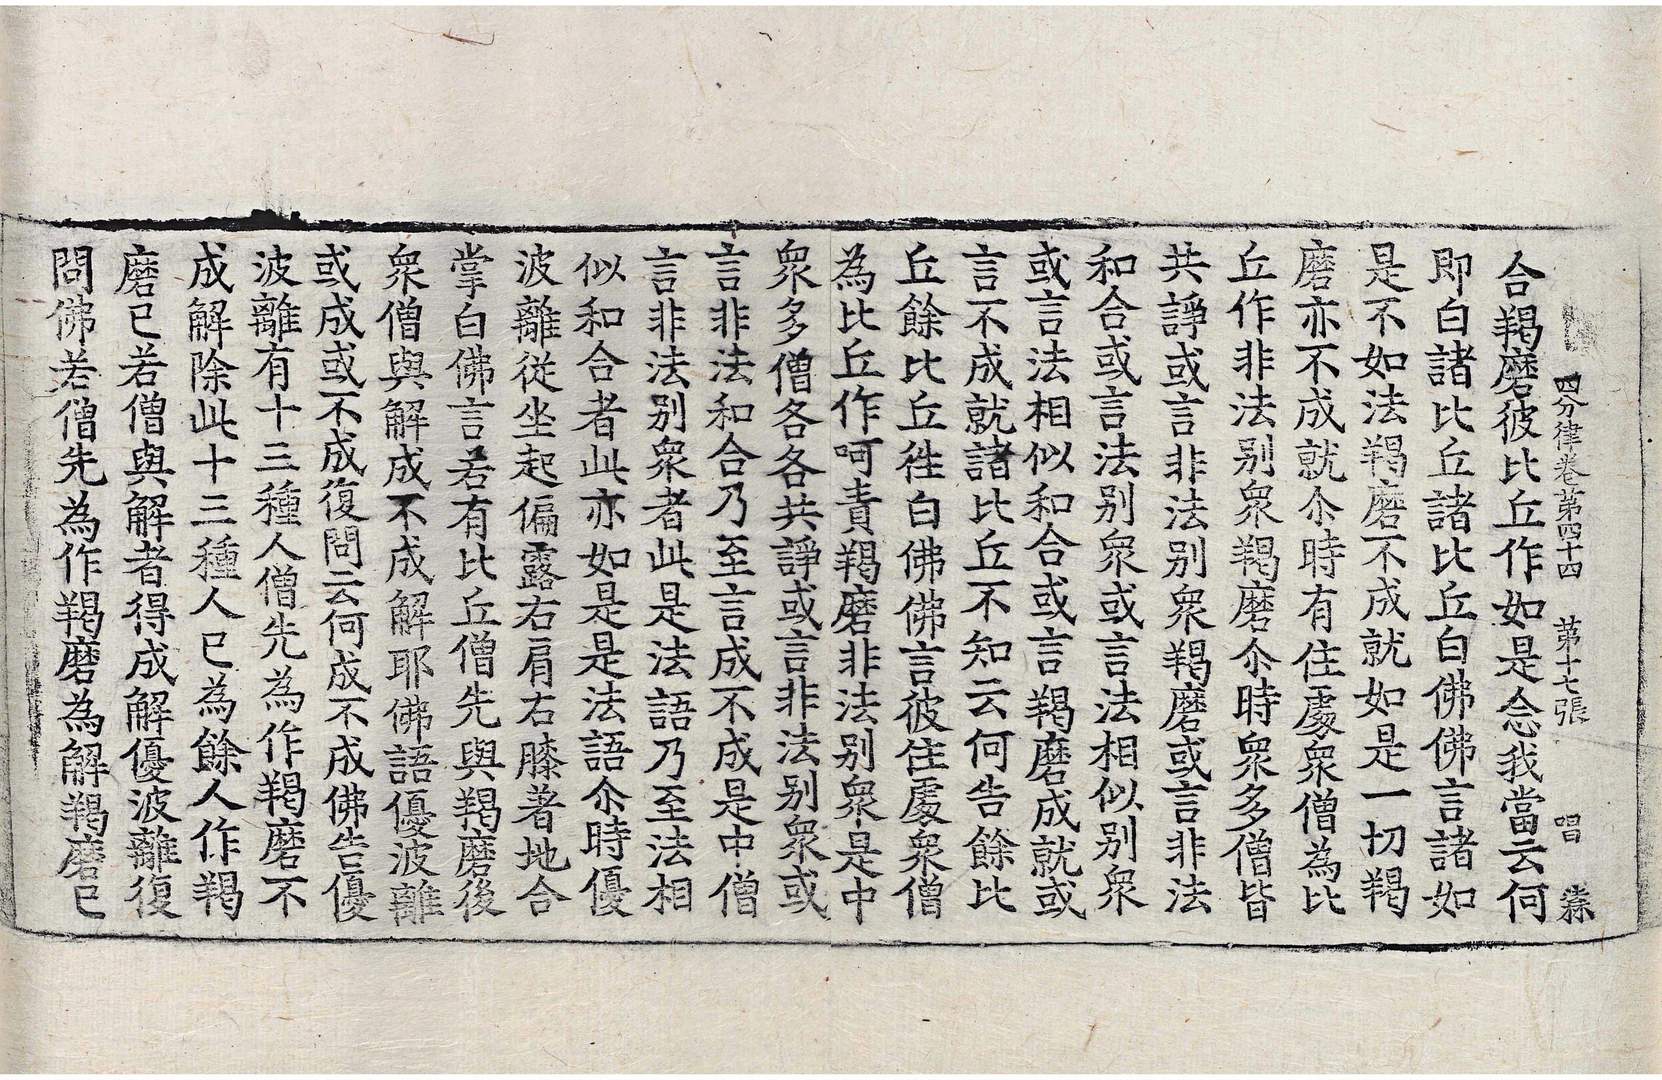 四分律卷第四十四 第十七張 唱
合羯磨彼比丘作如是念我當云何
即白諸比丘諸比丘白佛佛言諸如
是不如法羯磨不成就如是一切羯
磨亦不成就尒時有住處衆僧為比
丘作非法别衆羯磨尒時衆多僧皆
共諍或言非法别衆羯磨或言非法
和合或言法别衆或言法相似别衆
或言法相似和合或言羯磨成就或
言不成就諸比丘不知云何告餘比
丘餘比丘徃白佛佛言彼住處衆僧
為比丘作呵責羯磨非法别衆是中
衆多僧各各共諍或言非法别衆或
言非法和合乃至言成不成是中僧
言非法别衆者此是法語乃至法相
似和合者此亦如是是法語尒時優
波離從坐起偏露右肩右膝著地合
掌白佛言若有比丘僧先與羯磨後
衆僧與解成不成解耶佛語優波離
或成或不成復問云何成不成佛告優
波離有十三種人僧先為作羯磨不
成解除此十三種人已為餘人作羯
磨已若僧與解者得成解優波離復
問佛若僧先為作羯磨為解羯磨已